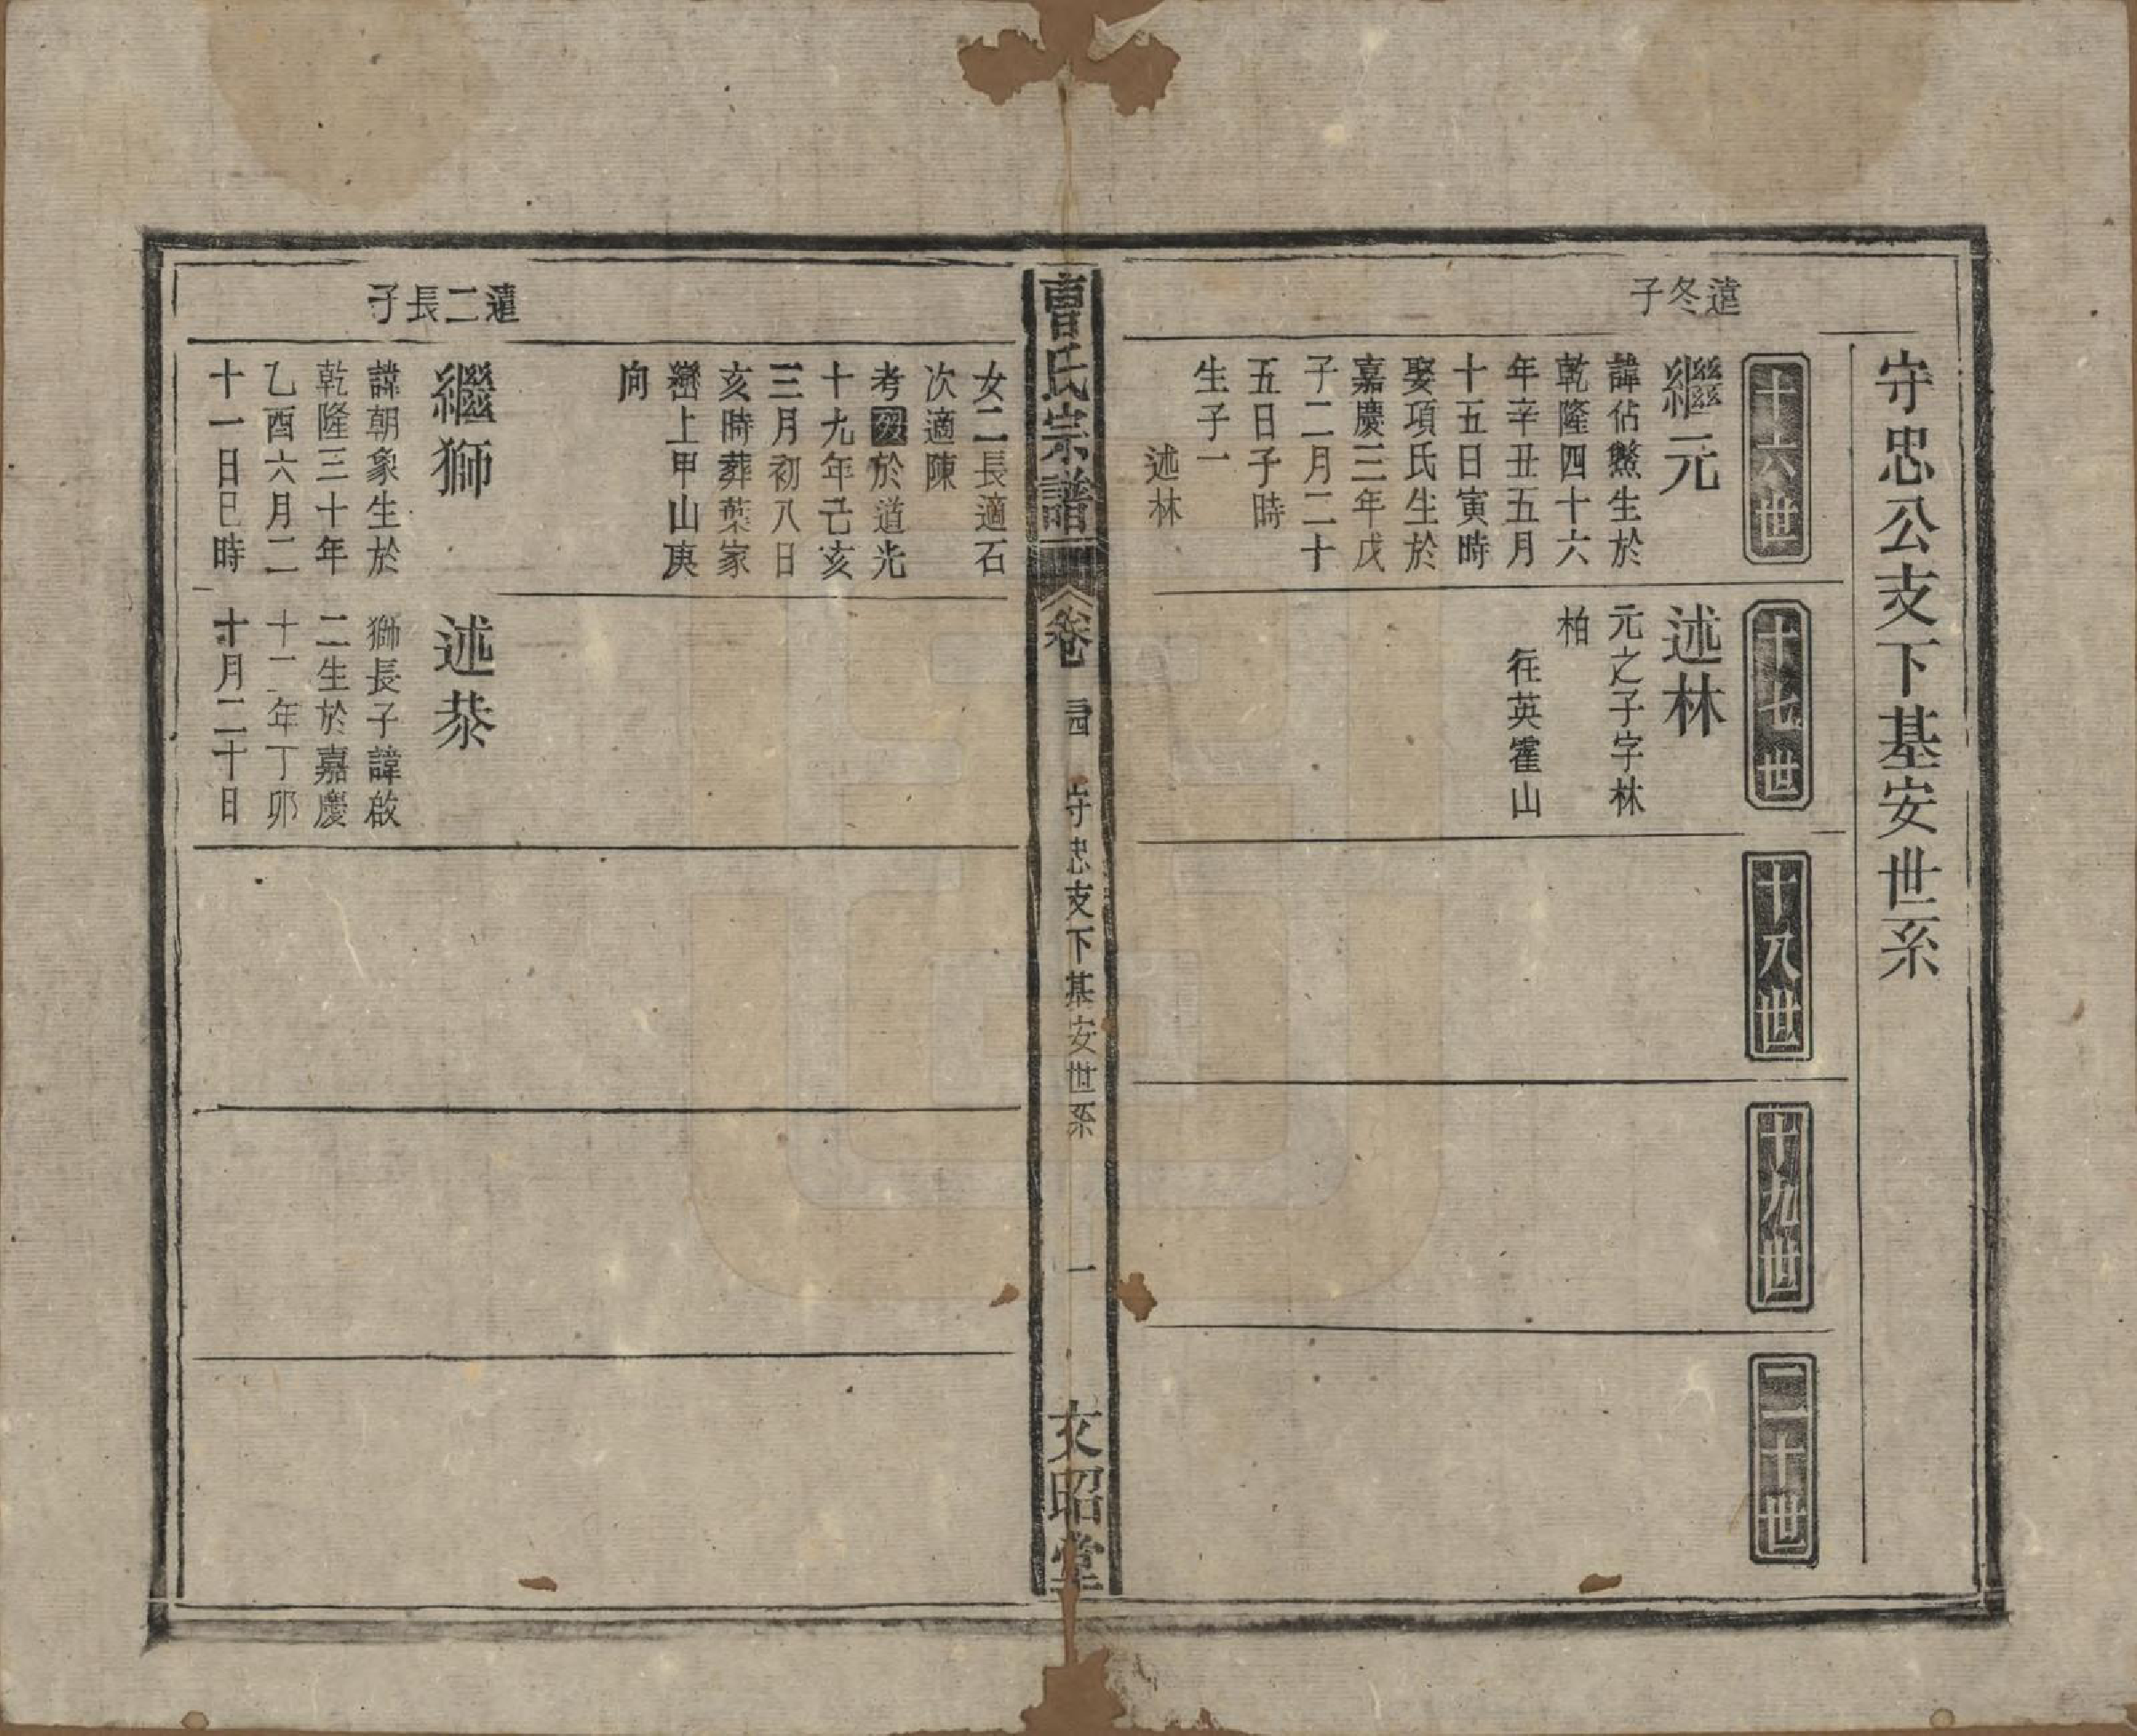 守忠公支下基安世系
十六世
十七世
十八世
十九世
二十世
遠冬子
繼元
諱佔鰲生於
乾隆四十六
年辛丑五月
十五日寅時
娶項氏生於
嘉慶三年戊
子二月二十
五日子時
生子一
述林
述林
元之子字林
柏
徃英霍山
曹氏宗譜
卷
守忠支下基安世系
一
文昭堂
女二長適石
次適陳
考歿於道光
十九年己亥
三月初八日
亥時葬葉家
上甲山庚
向
遠二長子
繼獅
諱朝象生於
乾隆三十年
乙酉六月二
十一日巳時
述恭
獅長子諱啟
二生於嘉慶
十二年丁卯
十月二十日